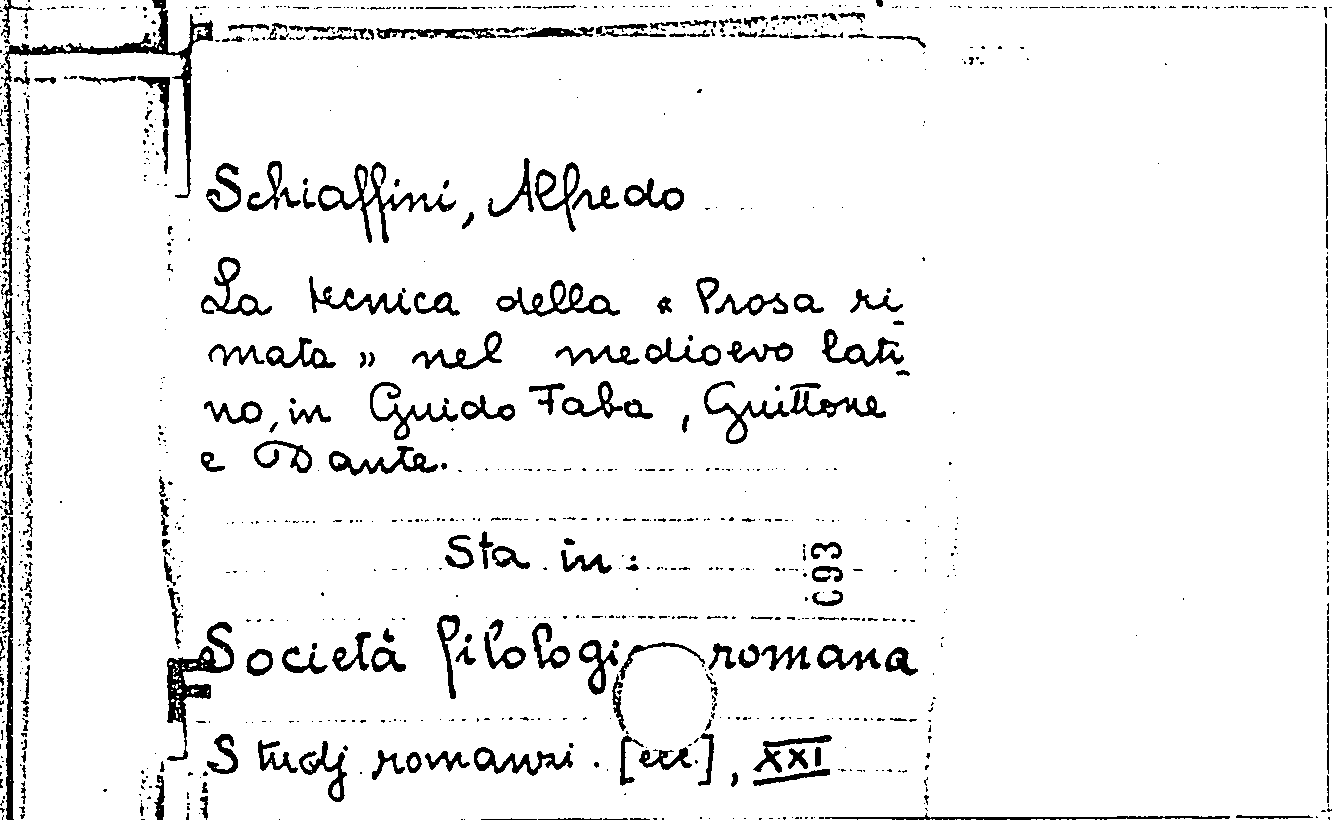 Schiaffini, Alfredo
La tecnica della « Prosa ri-
mata » nel medioevo lati-
no, in Guido Faba, Guittone
e Dante.
Sta in:
C93
Società filologica romana
Studj romanzi. [ecc], XXI